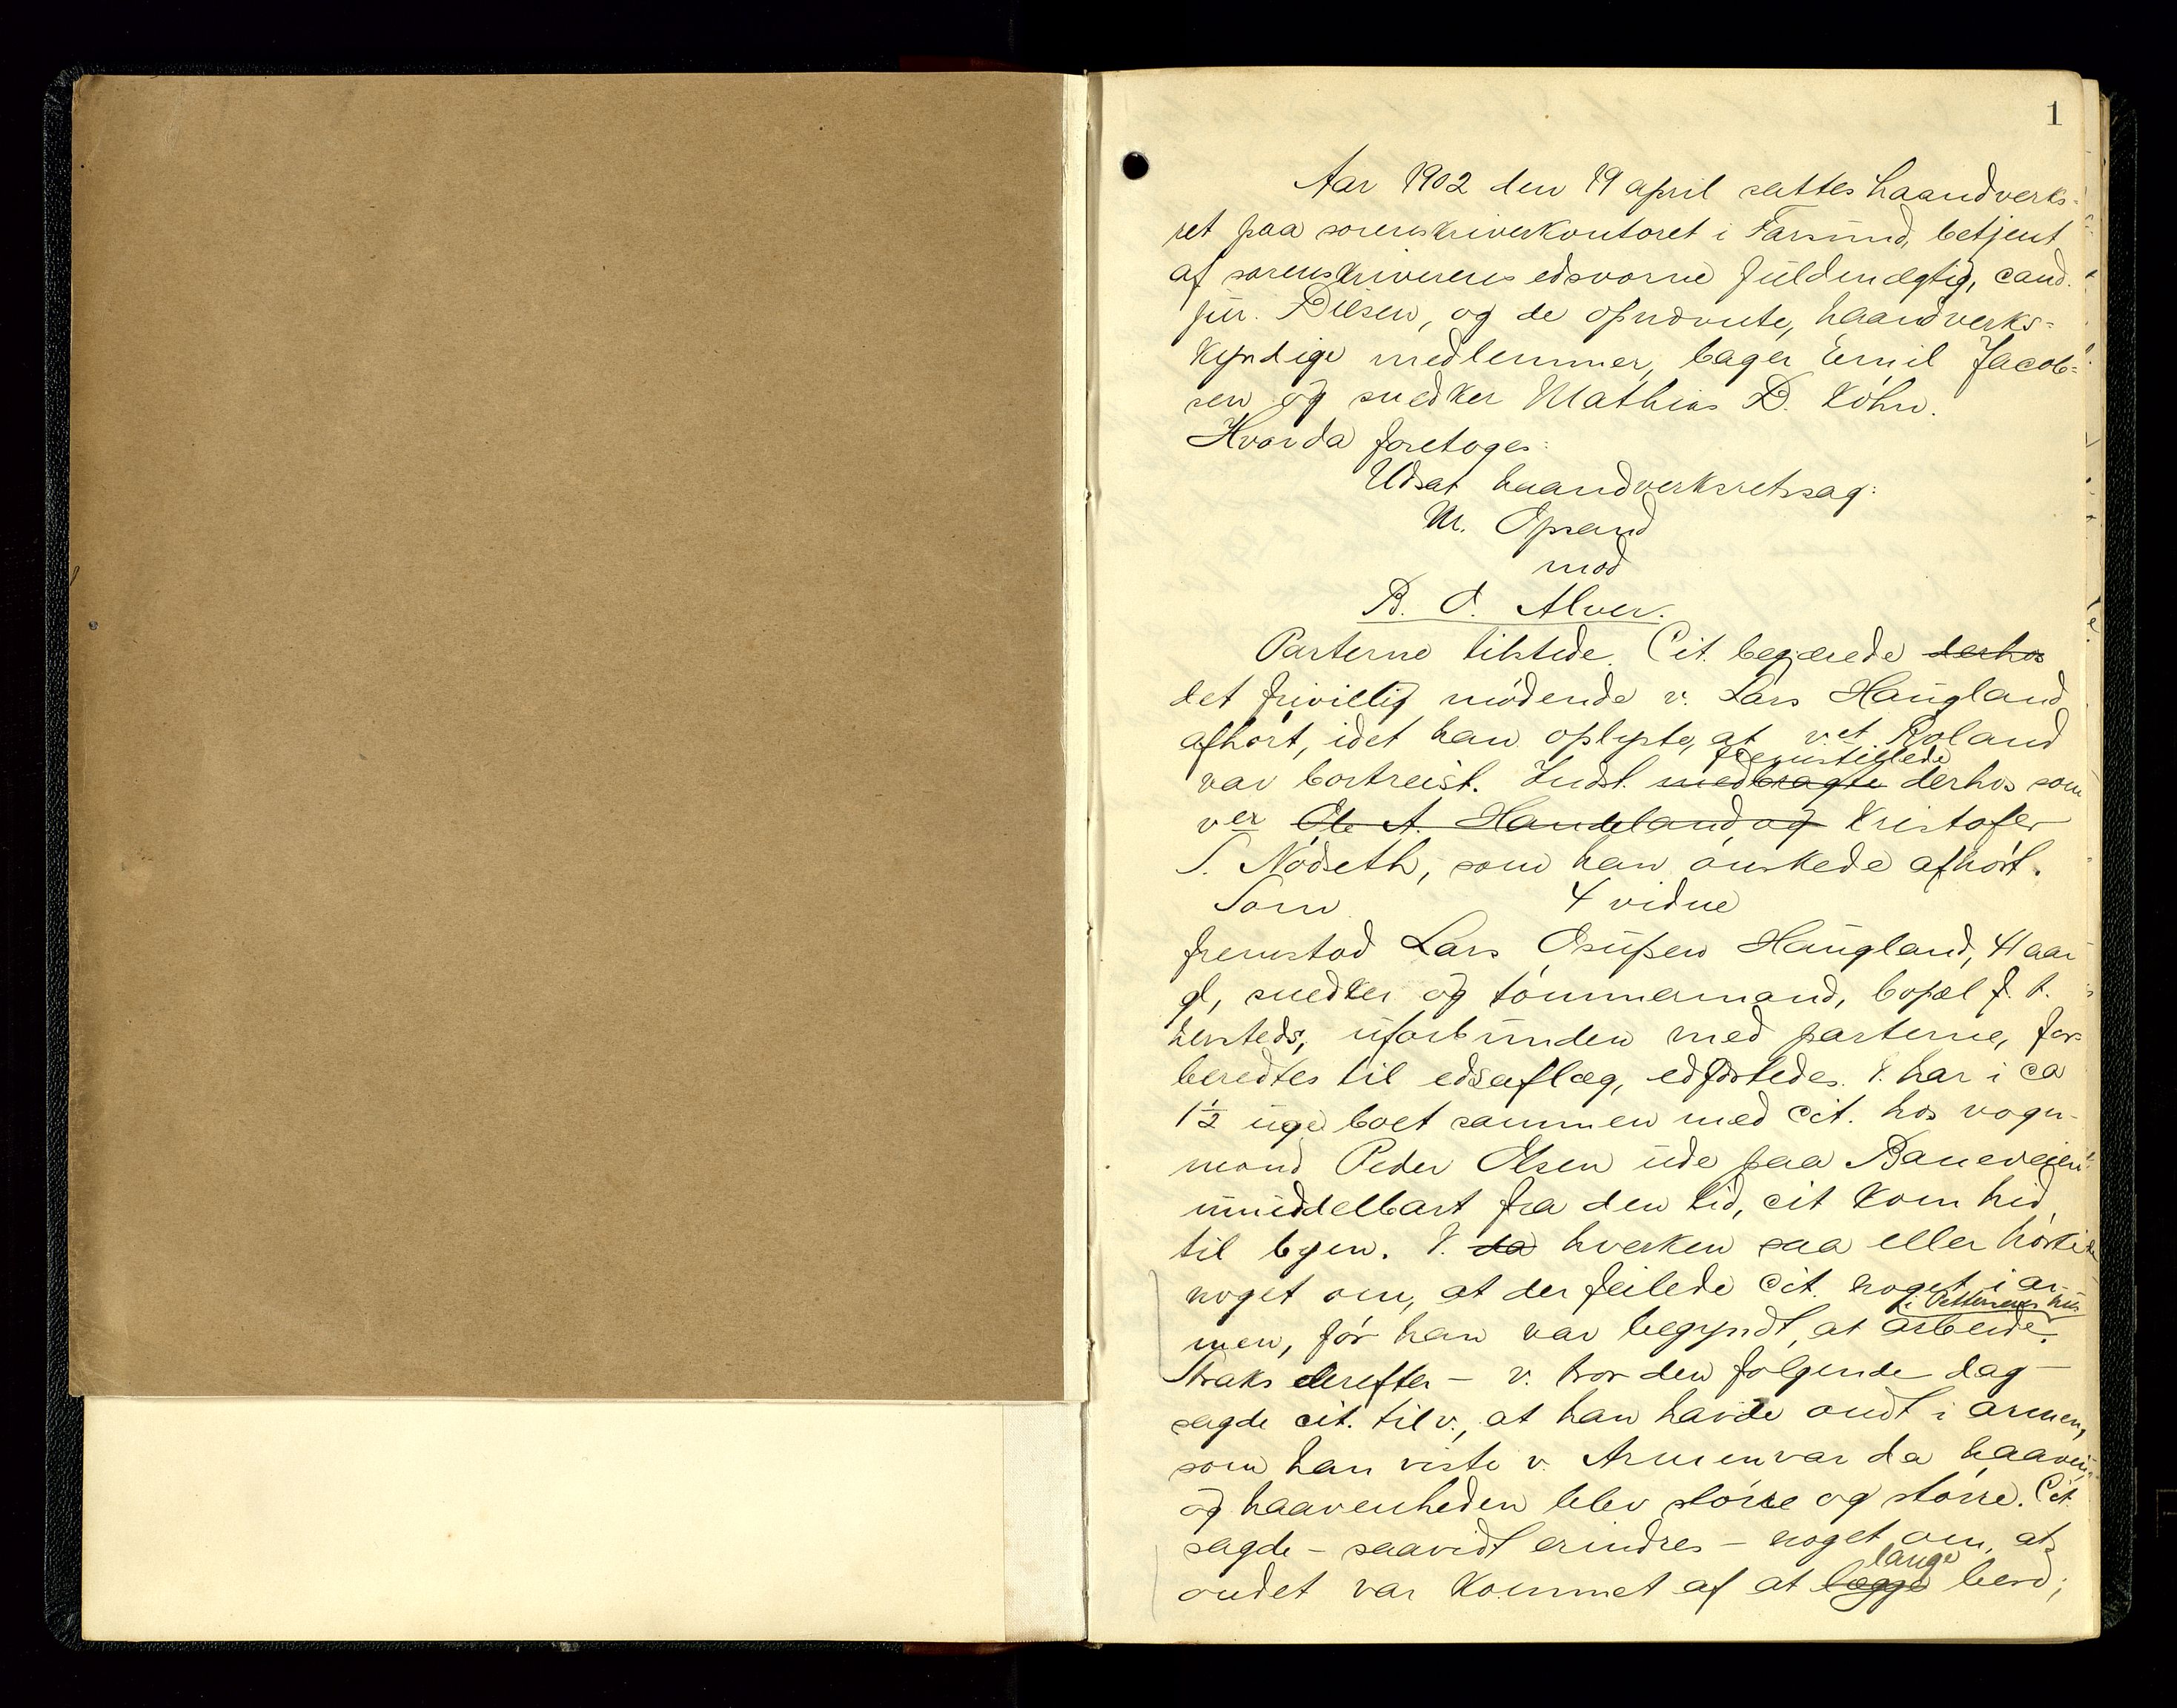 1
Aar 1902 den 19 april sattes haandverks-
ret paa sorenskriverkontoret i Farsund, betjent
af sorenskriverens edsvorne fuldmægtig, cand.
jur. Dilsen, og de opnævnte, haandverks-
kyndige medlemmer, bager Emil Jacob-
sen og snedker Mathias D. Køhn.
Hvorda foretoges:
Udsat haandverksretssag:
M. Opsand
mod
B. O. Alver.
Parterne tilstede. Cit. begjærede derhos
det frivillig mødende v. Lars Haugland
afhørt, idet han oplyste, at v.et Roland
fremstillede
var bortreist. Indst. medbragte derhos som
ver Ole A. Handeland og Kristofer
S. Nødseth, som han ønskede afhørt.
Som 4 vidne
fremstod Lars Osufsen Haugland, 41 aar
gl, snedker og tømmermand, bopæl f. t.
hersteds, uforbunden med parterne, for-
beredtes til edsaflæg, edfæstedes. V. har i ca
1½ uge boet sammen med cit. hos vogn-
mand Peder Olsen ude paa Baneveien
umiddelbart fra den tid, cit kom hid
til byen. V. da hverken saa eller hørte
noget om, at der feilede cit. noget i ar-
i Pettersens hus
men, før han var begyndt at arbeide.
Straks derefter – v. tror den følgende dag –
sagde cit. til v., at han havde ondt i armen,
som han viste v. Armen var da haaven,
og haavenheden blev større og større. Cit.
sagde – saavidt erindres – noget om, at
lange
ondet var kommet af at lægge bord;